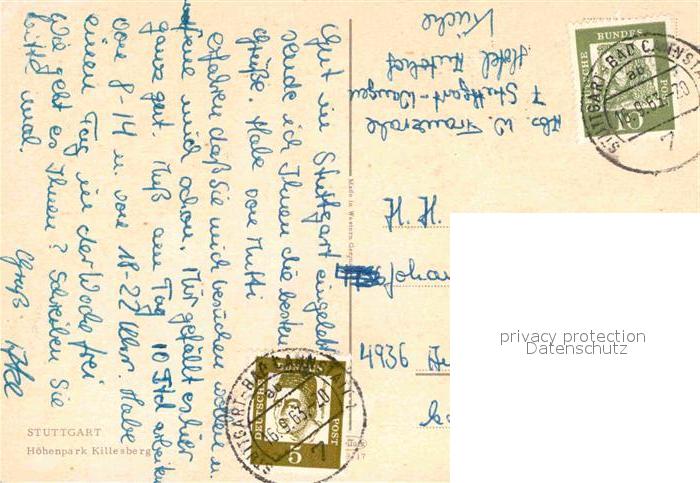 Gut in Stuttgart eingelebt
sende ich Ihnen die besten
Grüße. Habe von Mutti
erfahren daß Sie mich besuchen wollen u.
freue mich schon. Mir gefällt es hier
ganz gut. Muß am Tag 10 Std arbeiten
von 8-14 u. von 18-22 Uhr. Habe
einen Tag in der Woche frei
Wie geht es Ihnen? Schreiben Sie
bitte mal.
Gruß
STUTTGART
Höhenpark Killesberg
Made in Western Germany
Abs. W.
7 Stuttgart-Wangen
Hotel Autohof
Küche
H. H.
Johan
4936
DEUTSCHE BUNDESPOST
5
STUTTGART-BAD CANNSTATT 1
16.9.63-20
DEUTSCHE BUNDESPOST
10
STUTTGART-BAD CANNSTATT 1
16.9.63-20
privacy protection
Datenschutz